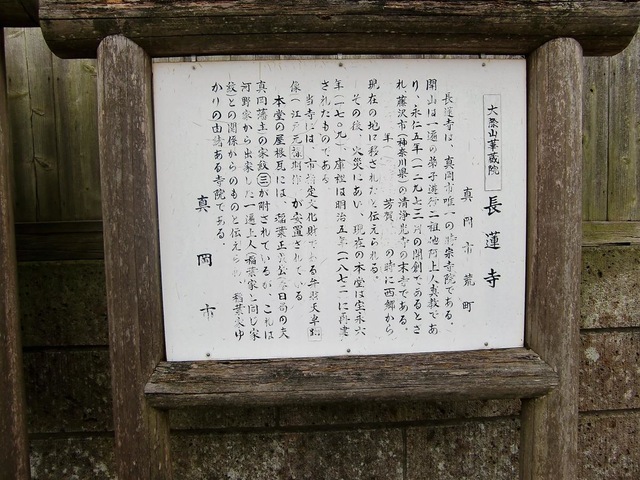 大際山華蔵院
長蓮寺
真岡市荒町
長蓮寺は、真岡市唯一の時宗寺院である。
開山は一遍の弟子遊行二祖他阿上人真教であ
り、永仁五年(一二九七三月の開創であるとさ
れ藤沢市(神奈川県)の清浄光寺の末寺である。
年 芳賀 の時に西郷から
現在の地に移されたと伝えられる。
その後、火災にあい、現在の本堂は宝永六
年(一七〇九)、庫裡は明治五年(一八七二)に再建
されたものである
当寺には、市指定文化財である弁財天
像(江戸元禄制作)が安置されている
本堂の屋根瓦には、稲葉正 春日局の夫
真岡藩主の家紋㊂が附されているが、これは
河野家から出家した一遍上人(稲葉家と同じ家
紋)との関係からのものと伝えられ、稲葉家ゆ
かりの由緒ある寺院である。
真岡市